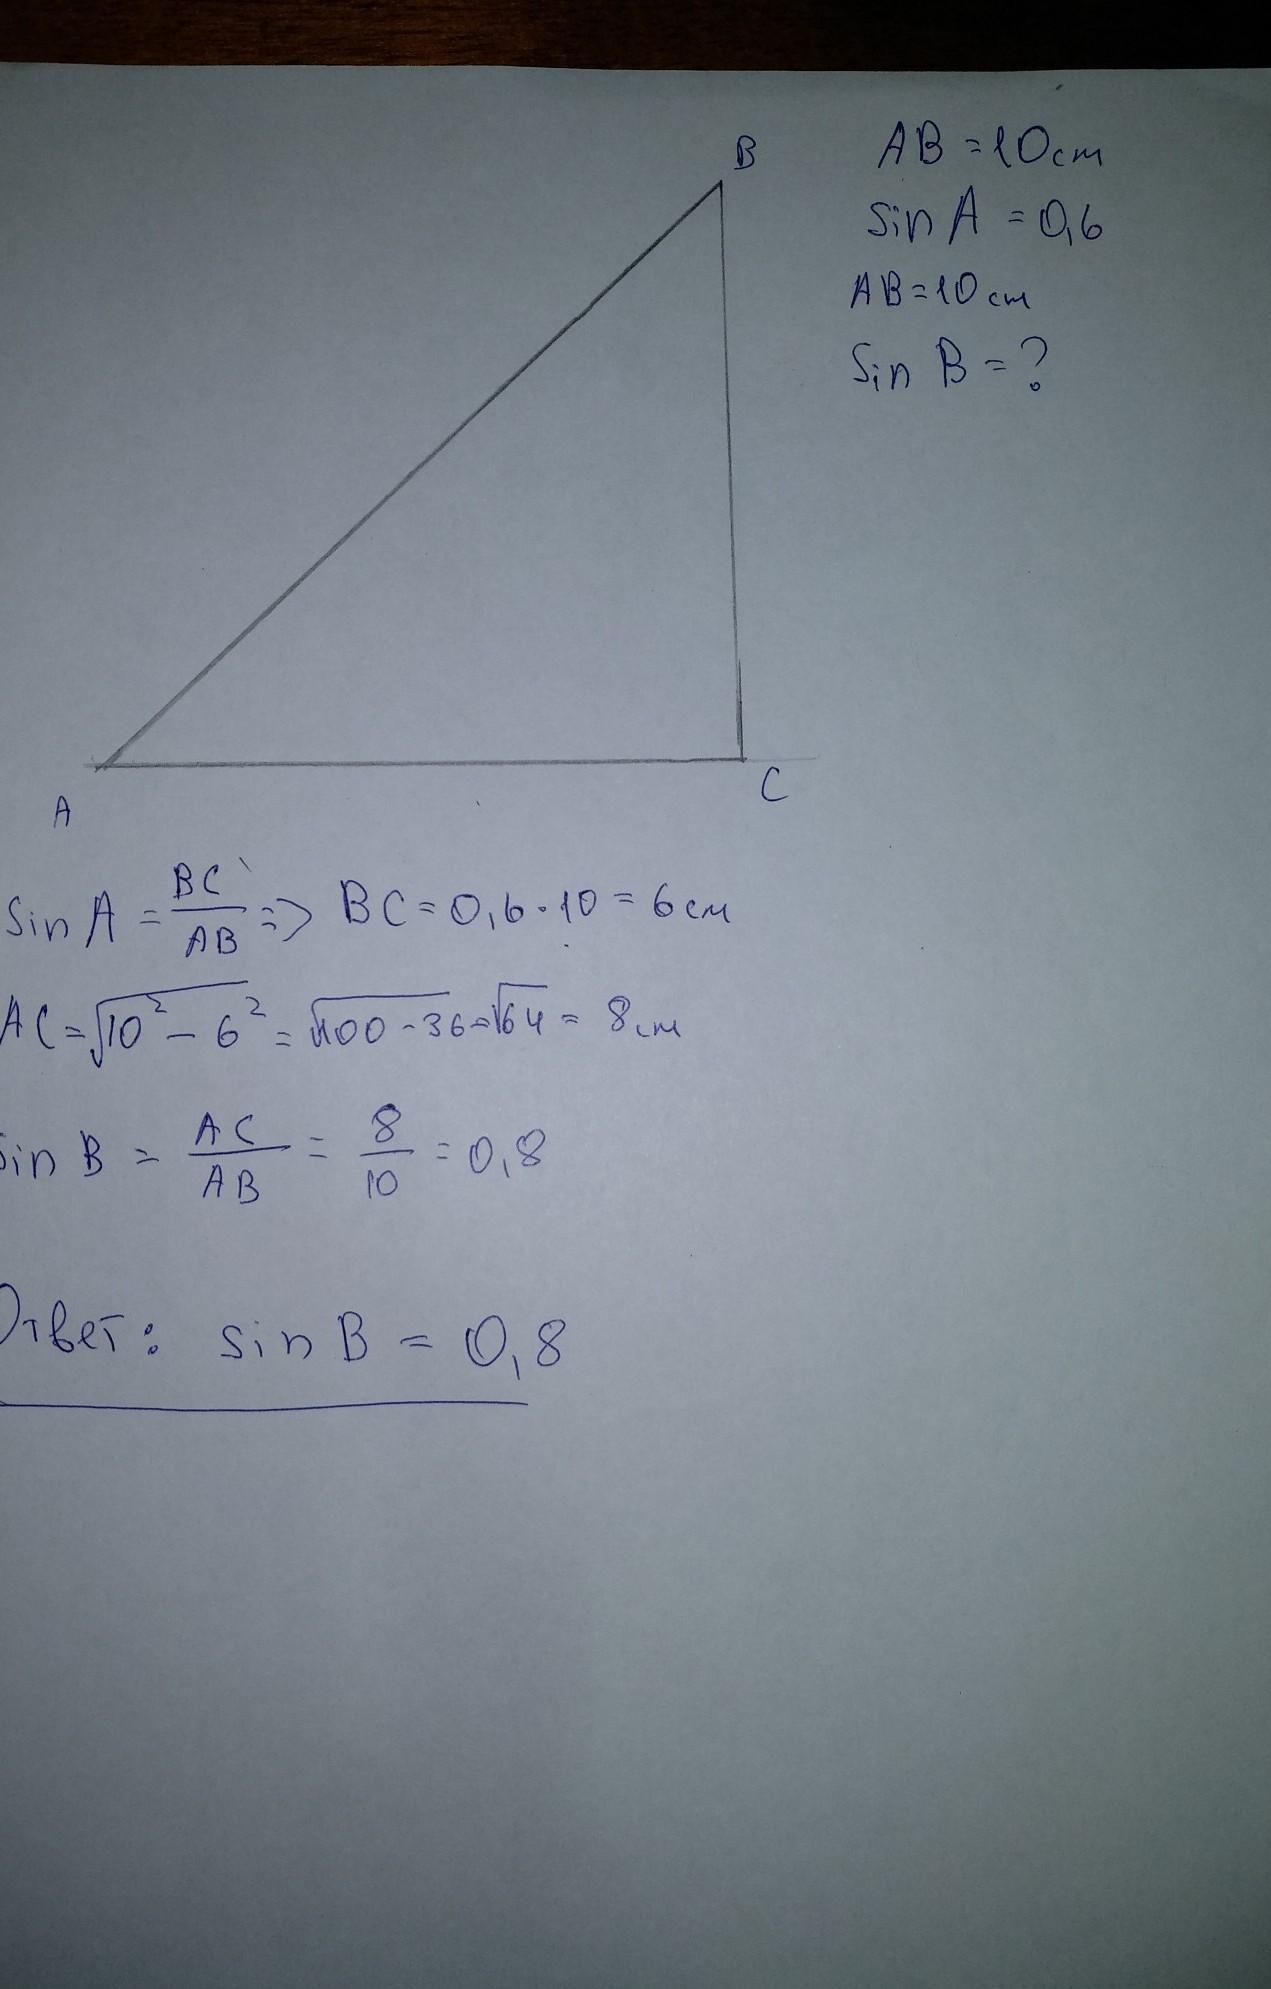 B
AB = 10 см
sin A = 0,6
AB = 10 см
sin B = ?
A
C
sin A = BC/AB => BC = 0,6 · 10 = 6 см
AC = √10² - 6² = √100 - 36 = √64 = 8 см
sin B = AC/AB = 8/10 = 0,8
Ответ: sin B = 0,8